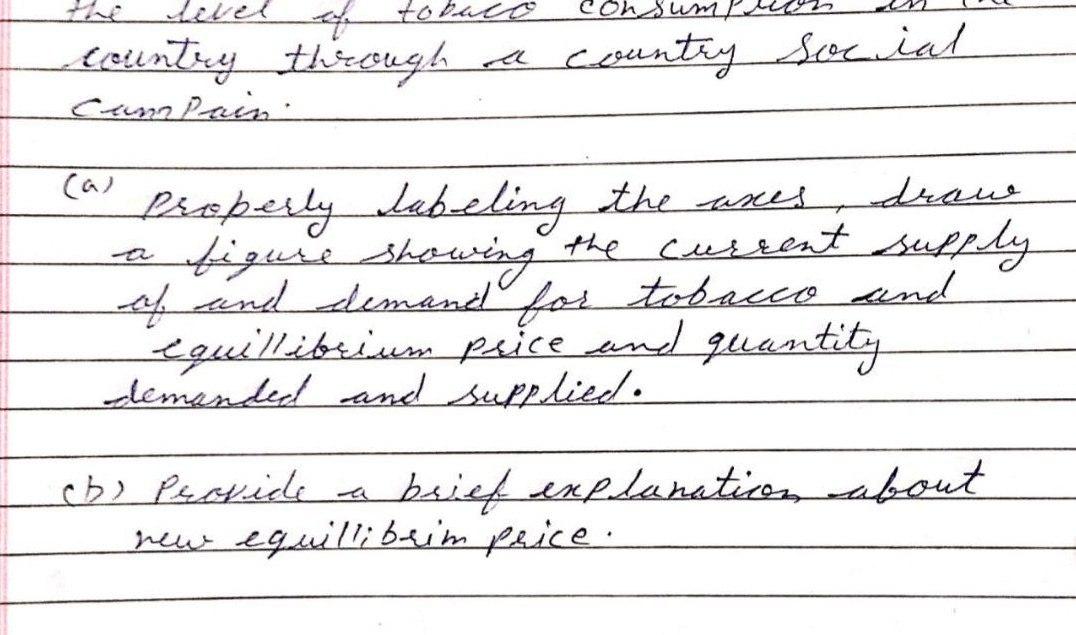 the level of tobacco consumption in the
country through a country social
campain.
(a) Properly labeling the axes, draw
a figure showing the current supply
of and demand for tobacco and
equillibrium price and quantity
demanded and supplied.
(b) Provide a brief explanation about
new equillibrim price.